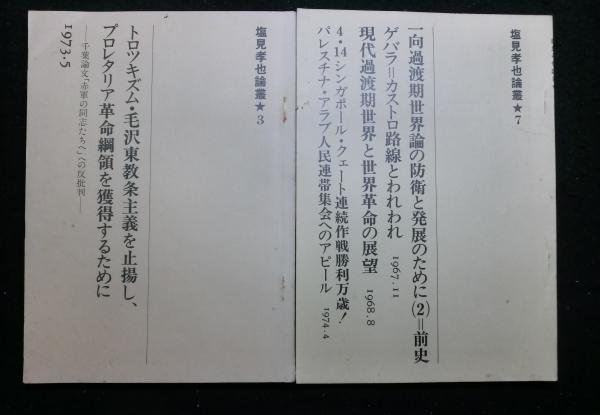 塩見孝也論叢★7
一向過渡期世界論の防衛と発展のために(2)=前史
ゲバラ=カストロ路線とわれわれ 1967.11
現代過渡期世界と世界革命の展望 1968.8
4・14シンガポール・クェート連続作戦勝利万歳!
パレスチナ・アラブ人民連帯集会へのアピール 1974.4
塩見孝也論叢★3
トロツキズム・毛沢東教条主義を止揚し、
プロレタリア革命綱領を獲得するために
——千葉論文「赤軍の同志たちへ」への反批判——
1973.5